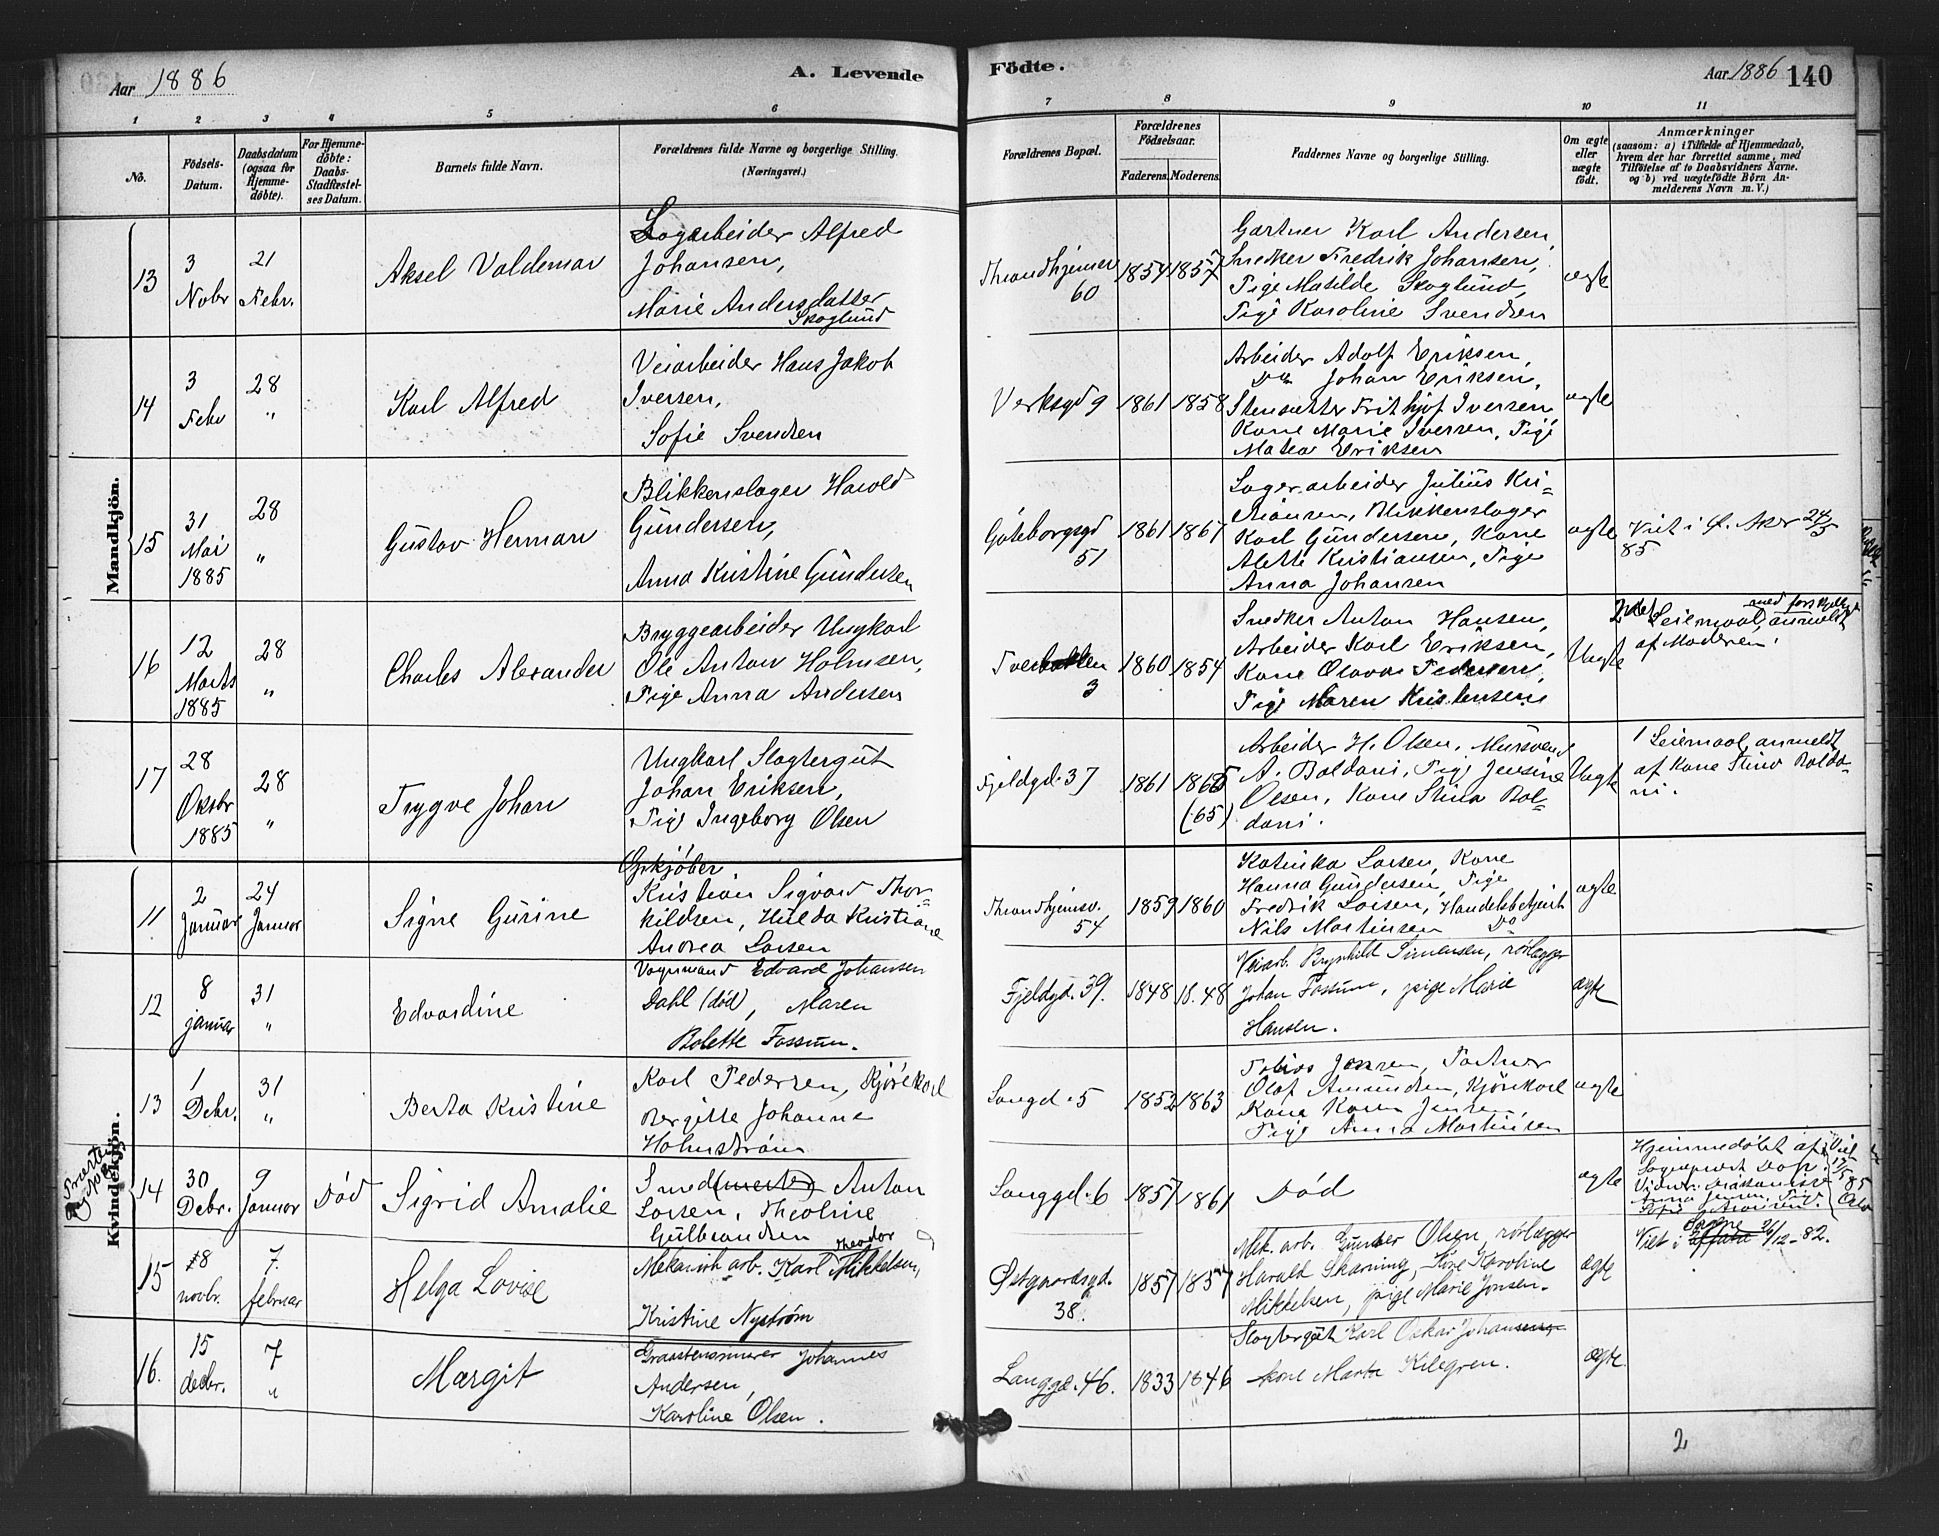 Aar 1886
A. Levende
Fødte.
Aar 1886 140
1 2 3 4 5 6 7 8 9 10 11
No.
Födsels-
Datum.
Daabsdatum
(ogsaa for
Hjemme-
döbte).
For Hjemme-
döbte:
Daabs-
Stadfæstel-
ses Datum.
Barnets fulde Navn.
Forældrenes fulde Navne og borgerlige Stilling.
(Næringsvei.)
Forældrenes Bopæl.
Forældrenes
Födselsaar.
Faderens. Moderens.
Faddernes Navne og borgerlige Stilling.
Om ægte
eller
uægte
født.
Anmærkninger
(saasom: a) i Tilfælde af Hjemmedaab,
hvem der har forrettet samme, med
Tilföielse af to Daabsvidners Navne.
og b) ved uægtefödte Börn An-
melderens Navn m. V.)
Mandkjön.
13
3
Nobr
21
Febr.
Aksel Valdemar
Lagarbeider Alfred
Johansen,
Marie Andersdatter
Skoglund
Throndhjemsv
60
1854 1857
Gartner Karl Andersen,
Snedker Fredrik Johansen,
Pige Matilde Skoglund,
Pige Karoline Svendsen
ægte
14
3
Febr
28
"
Karl Alfred
Veiarbeider Hans Jakob
Iversen,
Sofie Svendsen
Verksgd 9
1861 1858
Arbeider Adolf Eriksen,
Do Johan Eriksen,
Stensætter Frithjof Iversen,
Kone Marie Iversen, Pige
Matea Eriksen
ægte
15
31
Mai
1885
28
"
Gustav Herman
Blikkenslager Harold
Gundersen,
Anna Kristine Gundersen
Göteborgsgd
51
1861 1867
Lagerarbeider Julius Kri=
stiansen, Blikkenslager
Karl Gundersen, Kone
Alette Kristiansen, Pige
Anna Johansen
ægte
Viet i Ø. Aker 24/5
85
16
12
Marts
1885
28
"
Charles Alexander
Bryggearbeider Ungkarl
Ole Anton Holmsen,
Pige Anna Andersen
Tverbakken
3
1860 1854
Snedker Anton Hansen,
Arbeider Karl Eriksen,
Kone Olava Pedersen,
Pige Maren Kristensen
Uægte
2det Leiermaal med forskjellige, anmeldt
af Moderen.
17
28
Oktbr
1885
28
"
Trygve Johan
Ungkarl Slagtergut
Johan Eriksen,
Pige Ingeborg Olsen
Fjeldgd. 37
1861 1865
(65)
Arbeider H. Olsen, Mursvend
A. Baldani, Pige Jensine
Olsen, Kone Stina Bal=
dani.
Uægte
1 Leiermaal, anmeldt
af Kone Stina Balda-
ni.
Kvindekjön.
11
2
Januar
24
Januar
Signe Gurine
Opkjøber
Kristian Sigvard Thor=
kildsen, Hulda Kristiane
Andrea Larsen
Throndhjemsv.
54
1859 1860
Katinka Larsen, Kone
Hanna Gundersen, Pige
Fredrik Larsen, Handelsbetjent
Nils Martinsen Do
ægte
12
8
januar
31
"
Edvardine
Vognmand Edvard Johansen
Dahl (død), Maren
Bolette Fossum.
Fjeldgd. 39.
1848 18.48
Veiarb. Brynhild Simensen, rørlægger
Johan Fossum, pige Marie
Hansen.
ægte
13
1
Debr.
31
"
Berta Kristine
Karl Pedersen, Kjörekarl
Bergitte Johanne
Holmström
Langd. 5
1852 1863
Tobias Jensen,
Olaf Amundsen, Kjörekarl
Kone Karen Jensen,
Pige Anna Martinsen
ægte
14
30
Debr.
9
Januar
Död
Sigrid Amalie
Smed (mester) Anton
Larsen, Theoline
Gulbrandsen
Langgd. 6
1857 1861
Död
ægte
Hjemmedöbt af
Viet
15
18
novbr.
7.
februar
Helga Lovise
Mekanisk arb. Karl Theodor Mikkelsen,
Kristine Nyström
Østgaardsgd.
38.
1857 1857
Mek. arb. Gunder Olsen, rørlægger
Harald Skarning, Kone Karoline
Mikkelsen, pige Marie Jonsen.
ægte
Viet i 26/12-82.
16.
15
decbr.
7
"
Margit
Graastensmurer Johannes
Andersen,
Karoline Olsen.
Langgd. 46.
1833 1846
Slagtergut Karl Oskar Johansen,
kone Marta Kilegren.
ægte.
2